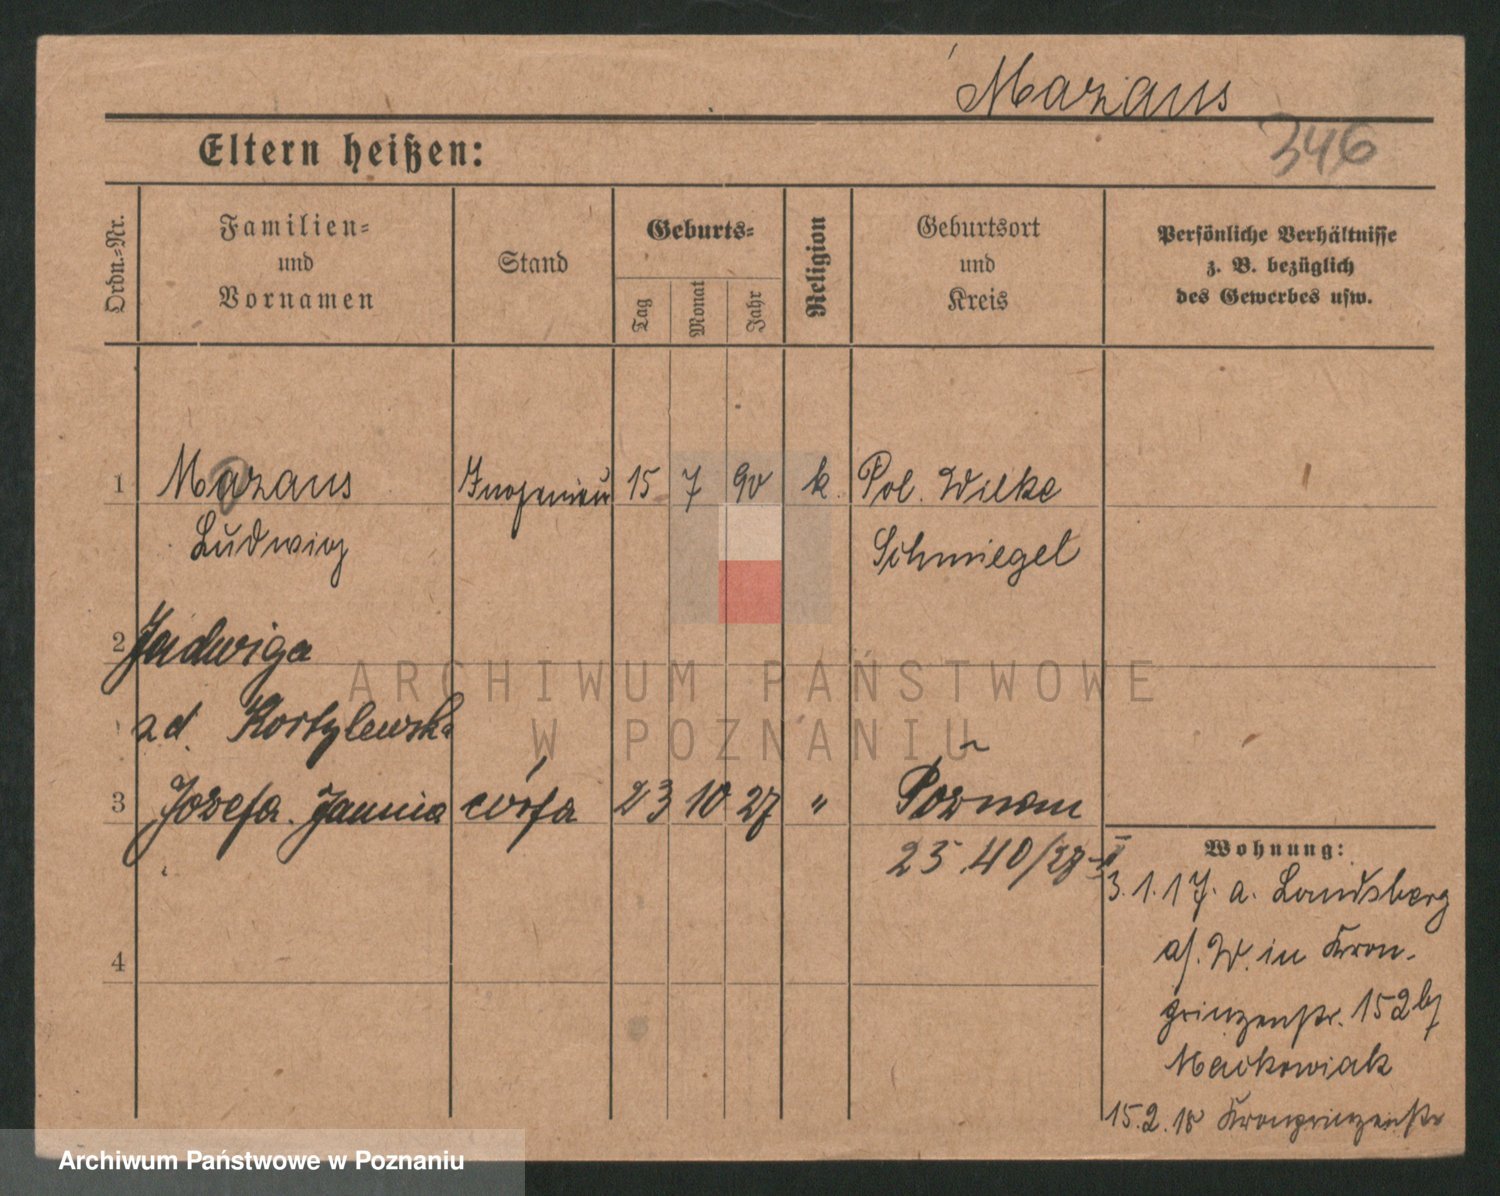 Mazaus
346
Eltern heißen:
Ordn.=Nr.
Familien=
und
Vornamen
Stand
Geburts=
Tag
Monat
Jahr
Religion
Geburtsort
und
Kreis
Persönliche Verhältnisse
z. B. bezüglich
des Gewerbes usw.
1 Mazaus Ingenieur 15 7 90 k. Pol. Wilke
Ludwig Schmiegel
2 Jadwiga
zd. Kortylewska
3 Józefa. Janina córka 23 10 27 " Poznań
25 40/28 II
Wohnung:
3.1.17. a. Landsberg
a/. W. in Kron-
prinzenstr. 152 b/
Maćkowiak
15.2.18 Kronprinzenstr
4
ARCHIWUM PAŃSTWOWE
W POZNANIU
Archiwum Państwowe w Poznaniu